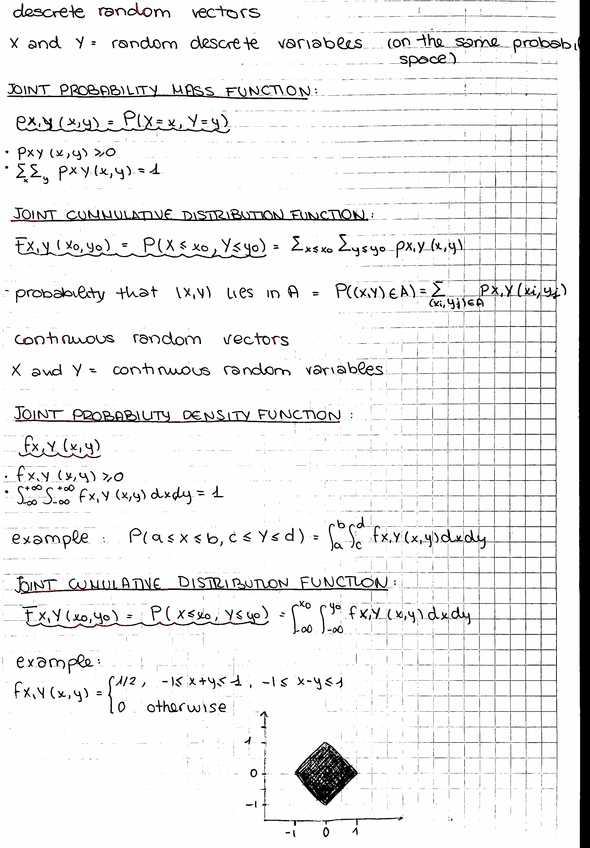 descrete random vectors
X and Y = random descrete variables (on the same probabi
space)
JOINT PROBABILITY MASS FUNCTION:
pX,Y (x,y) = P(X=x, Y=y)
• pXY (x,y) ≥0
• Σx Σy pXY (x,y) = 1
JOINT CUMMULATIVE DISTRIBUTION FUNCTION:
FX,Y (x0,y0) = P(X ≤ x0, Y≤y0) = Σx≤x0 Σy≤y0 pX,Y (x,y)
- probability that (X,Y) lies in A = P((X,Y)∈A) = Σ(xi,yj)∈A pX,Y (xi,yj)
continuous random vectors
X and Y = continuous random variables
JOINT PROBABILITY DENSITY FUNCTION :
fX,Y (x,y)
• fX,Y (x,y) ≥0
• ∫-∞+∞ ∫-∞+∞ fX,Y (x,y) dxdy = 1
example : P(a ≤ x ≤ b, c ≤ Y ≤ d) = ∫ab ∫cd fX,Y (x,y) dxdy
JOINT CUMULATIVE DISTRIBUTION FUNCTION:
FX,Y (x0,y0) = P( X≤x0, Y≤y0) = ∫-∞x0 ∫-∞y0 fX,Y (x,y) dxdy
example:
fX,Y (x,y) = { 1/2, -1≤ x+y ≤ 1, -1≤ x-y ≤ 1
0 otherwise
1
0
-1
-1 0 1